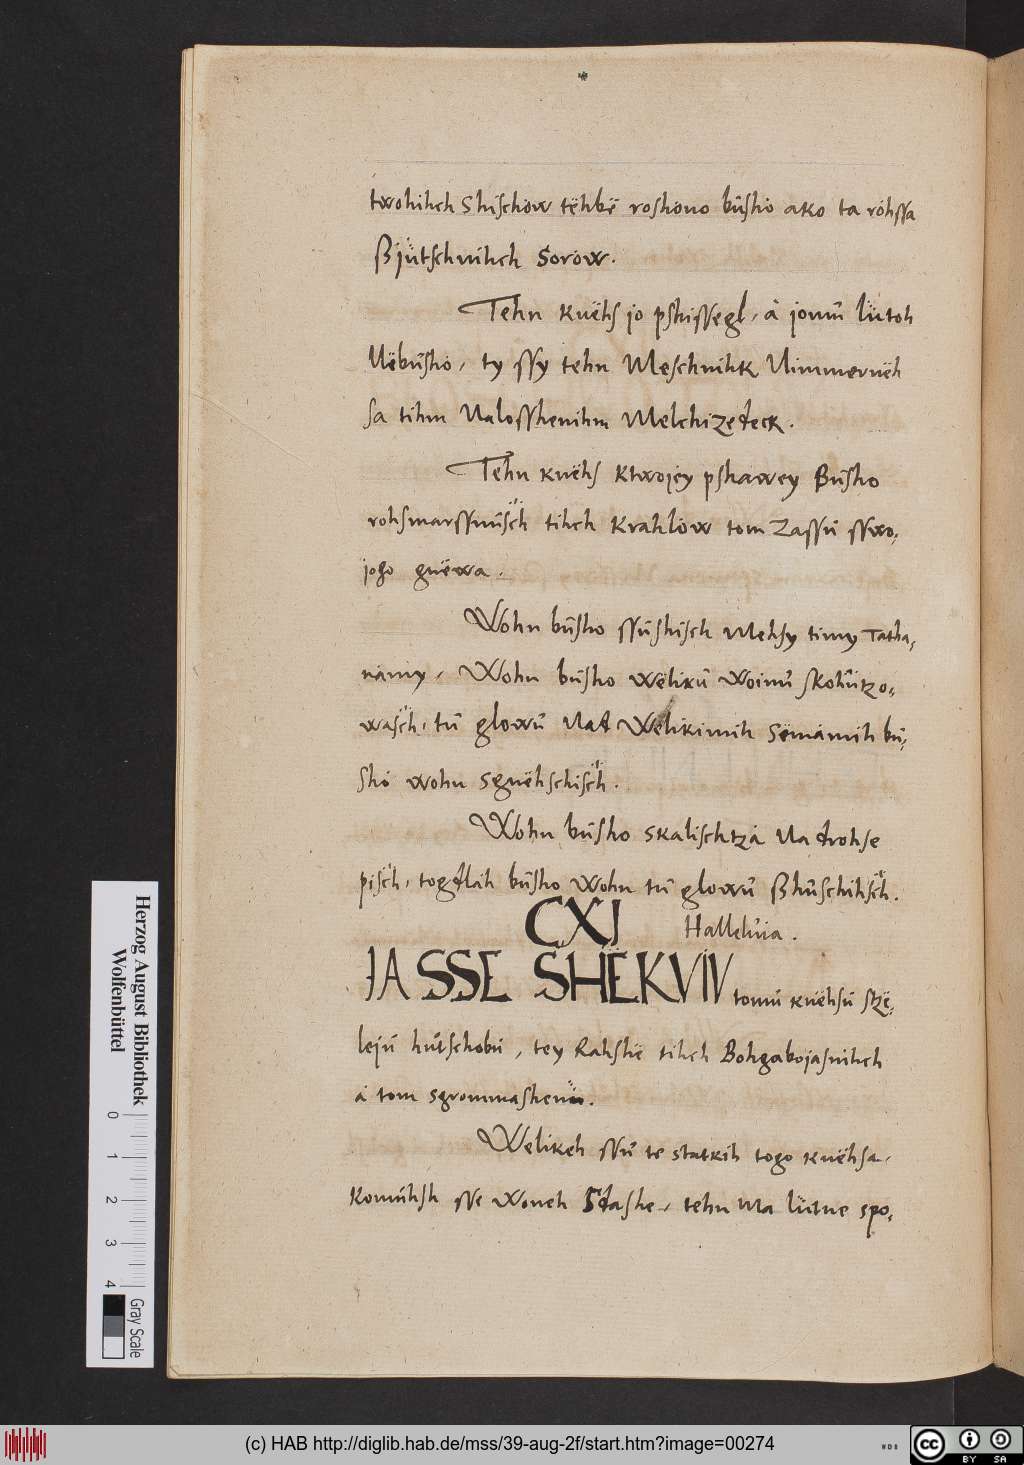 twohihch Shischow tëhbë roshono bůsho ako ta rohssa
ßjůtschnihch Sorow.
Tehn Knëhs jo pshissegl, à jomů lůtoh
Nëbůsho, ty ssy tehn Meschnihk Nimmernëh
sa tihm Nalosshenihm Melchizedeck.
Tehn knëhs ktwojey pshawey Bůsho
rohsmarssnůsch tihch Krahlow tom Zassů sswo,
jogo gnëwa.
Wohn bůsho ssůshisch Mehsy timy Tatha,
namy, Wohn bůsho wëliků Woinů skohůitzo,
wasch, tů glowů Nad Wëlikimih Sëmamih bů,
sho wohn sgnëhschisch.
Wohn bůsho skalischtzà Na drohse
pisch, togdlah bůsho Wohn tů glowů ßhůschihsch.
CXI Halleluia.
JA SSE SHËKVIV tomů knëhsů szë,
lejů hůtschobů, tey Rahshë tihch Bohgabojasnihch
à tom sgrommashenů.
Welikeh ssů te statkih togo knëhsa,
Komůhsh sse woneh Sdashe, tehn Ma lůtne spo,
Herzog August Bibliothek
Wolfenbüttel
0 1 2 3 4
Gray Scale
(c) HAB http://diglib.hab.de/mss/39-aug-2f/start.htm?image=00274
WDB
cc BY SA